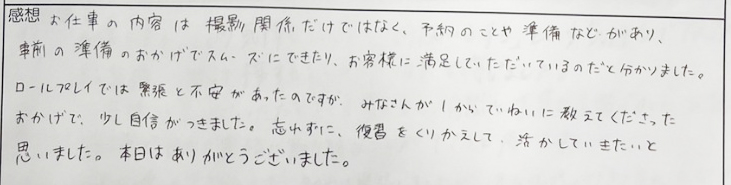 感想 お仕事の内容は撮影関係だけではなく、予約のことや準備などがあり、
事前の準備のおかげでスムーズにできたり、お客様に満足していただいているのだと分かりました。
ロールプレイでは緊張と不安があったのですが、みなさんが1からていねいに教えてくださった
おかげで、少し自信がつきました。忘れずに、復習をくりかえして、活かしていきたいと
思いました。本日はありがとうございました。